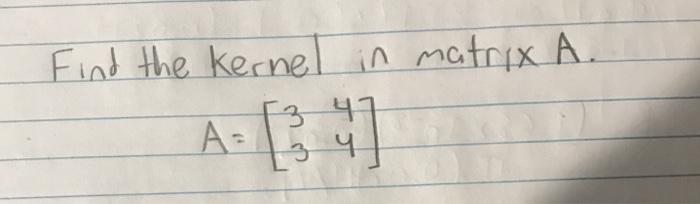 Find the kernel in matrix A.
A = [3 4
3 4]